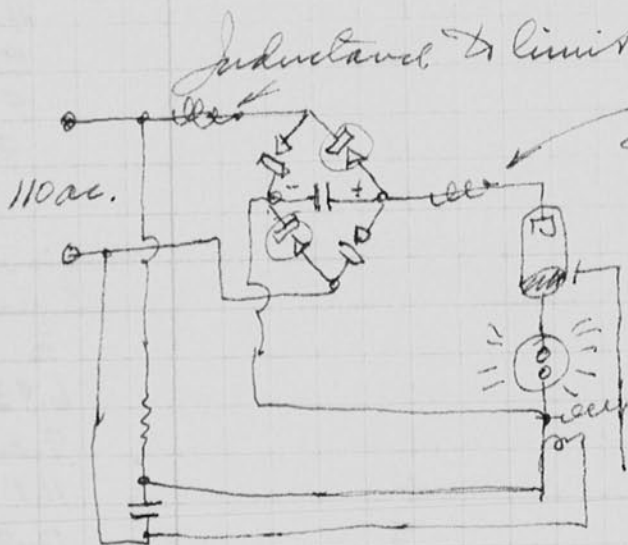 Inductance to limit
110 ac.
- +